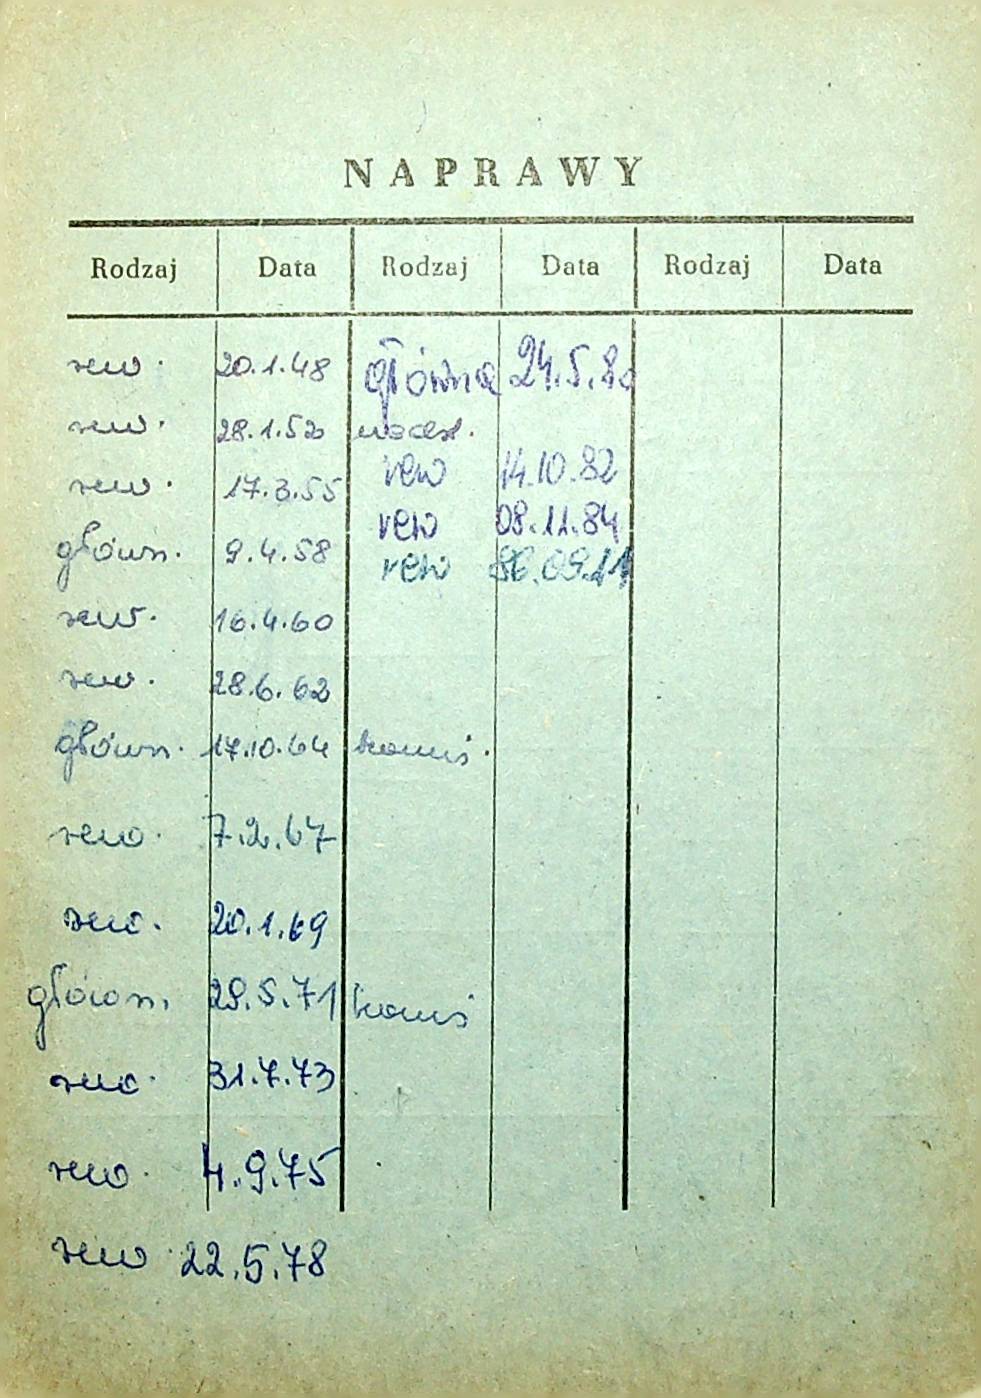 NAPRAWY
Rodzaj Data Rodzaj Data Rodzaj Data
rew. 20.1.48 główna 24.5.80
rew. 28.1.52
rew. 17.3.55 rew 14.10.82
rew 08.11.84
główn. 9.4.58 rew 86.09.11
rew. 16.4.60
rew. 28.6.62
główn. 17.10.64 komis.
rew. 7.2.67
rew. 20.1.69
główn. 28.5.71 komis
rew. 31.7.73
rew. 4.9.75
rew 22.5.78